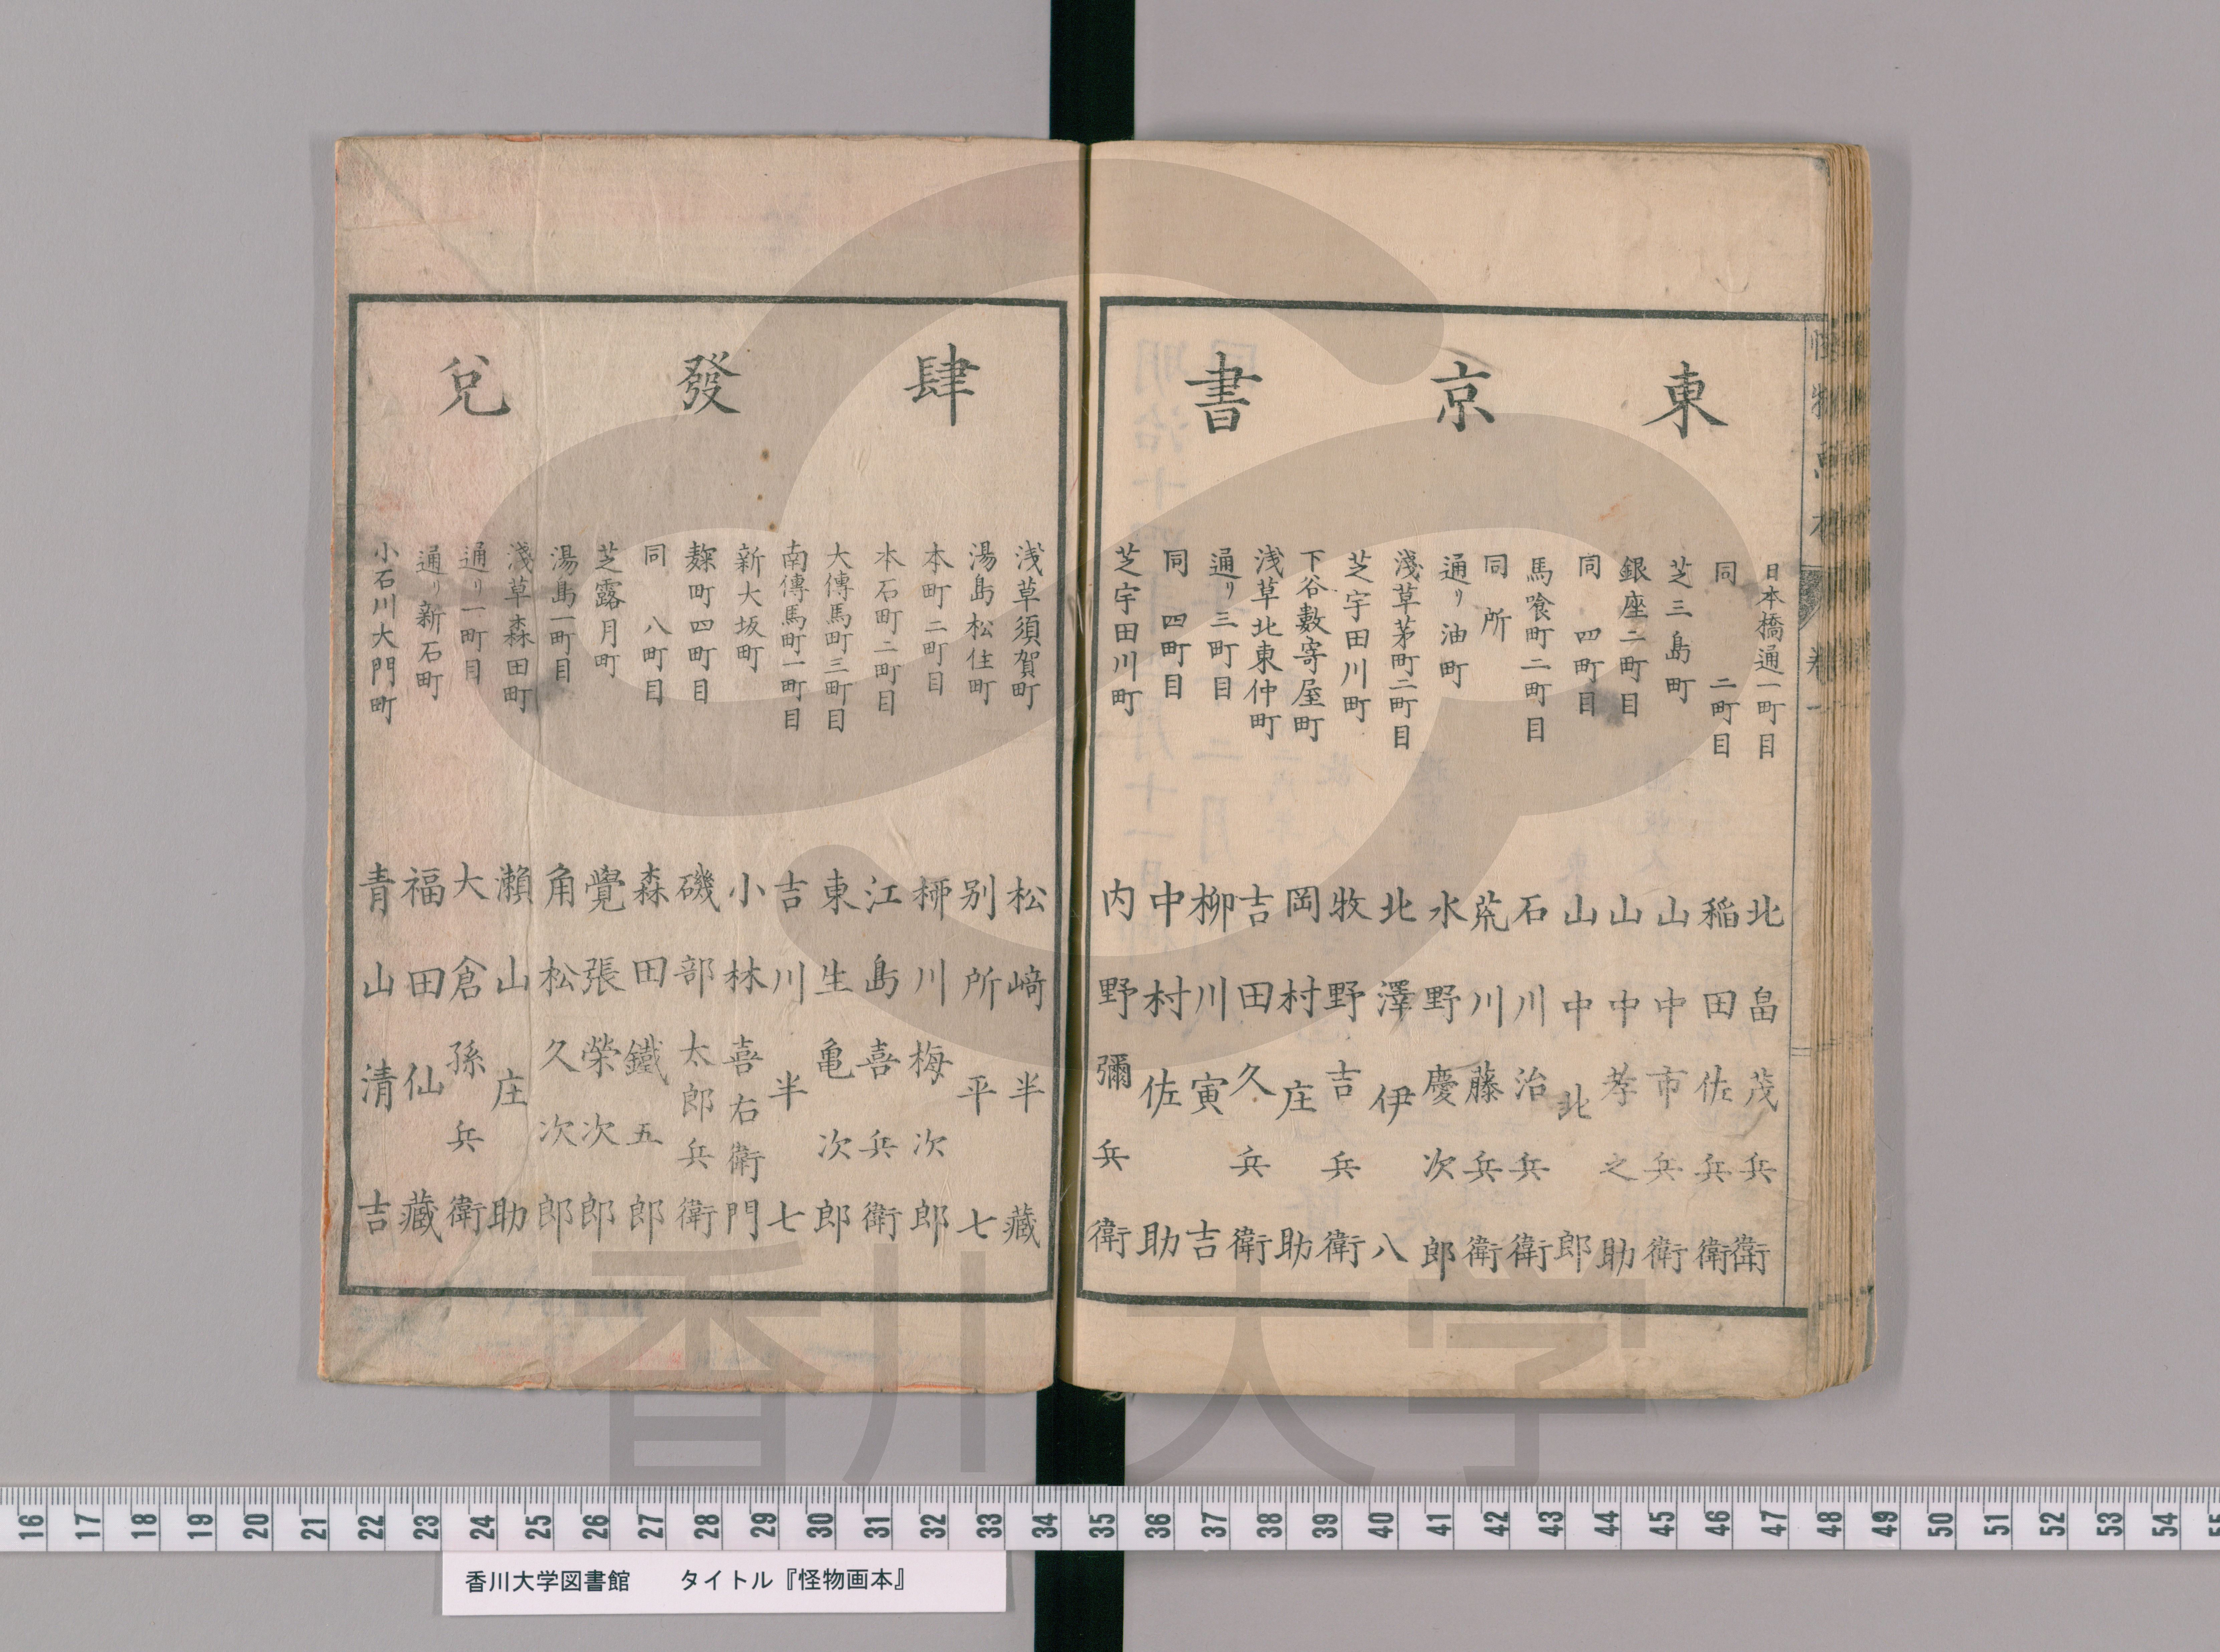 東京書
日本橋通一町目 北畠茂兵衛
同 二町目 稲田佐兵衛
芝三島町 山中市兵衛
銀座二町目 山中孝之助
同 四町目 山中北郎
馬喰町二町目 石川治兵衛
同所 荒川藤兵衛
通リ油町 水野慶次郎
淺草茅町二町目 北澤伊八
芝宇田川町 牧野吉兵衛
下谷數寄屋町 岡村庄助
浅草北東仲町 吉田久兵衛
通リ三町目 柳川寅吉
同 四町目 中村佐助
芝宇田川町 内野彌兵衛
肆發兌
浅草須賀町 松﨑半藏
湯島松住町 别所平七
本町二町目 柳川梅次郎
本石町二町目 江島喜兵衛
大傳馬町三町目 東生亀次郎
南傳馬町一町目 吉川半七
新大坂町 小林喜右衛門
麹町四町目 磯部太郎兵衛
同 八町目 森田鐵五郎
芝露月町 覺張榮次郎
湯島一町目 角松久次郎
淺草森田町 瀬山庄助
通リ一町目 大倉孫兵衛
通リ新石町 福田仙藏
小石川大門町 青山清吉
香川大学
16 17 18 19 20 21 22 23 24 25 26 27 28 29 30 31 32 33 34 35 36 37 38 39 40 41 42 43 44 45 46 47 48 49 50 51 52 53 54
香川大学図書館 タイトル『怪物画本』